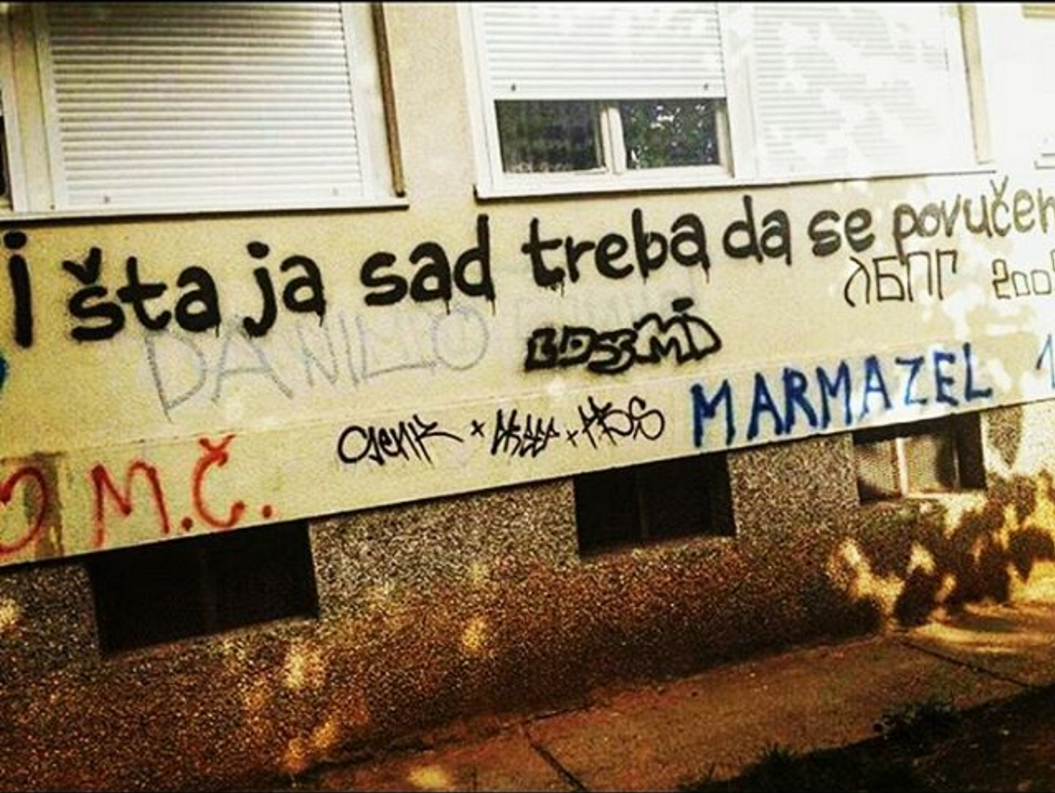 i šta ja sad treba da se povučem
ЛБПГ 200
DANILO
MARMAZEL 1
M.Č.